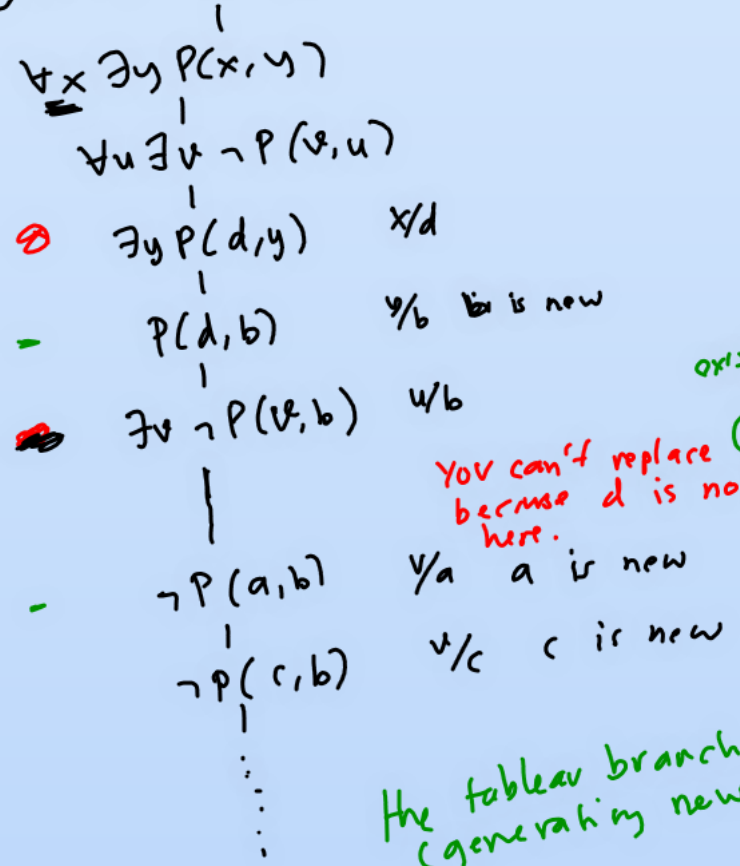 ∀x ∃y P(x,y)
∀u ∃v ¬P(v,u)
∃y P(d,y) x/d
P(d,b) y/b b is new
∃v ¬P(v,b) u/b
You can't replace
because d is no
here.
¬P(a,b) v/a a is new
¬P(c,b) v/c c is new
the tableau branch
(generating new